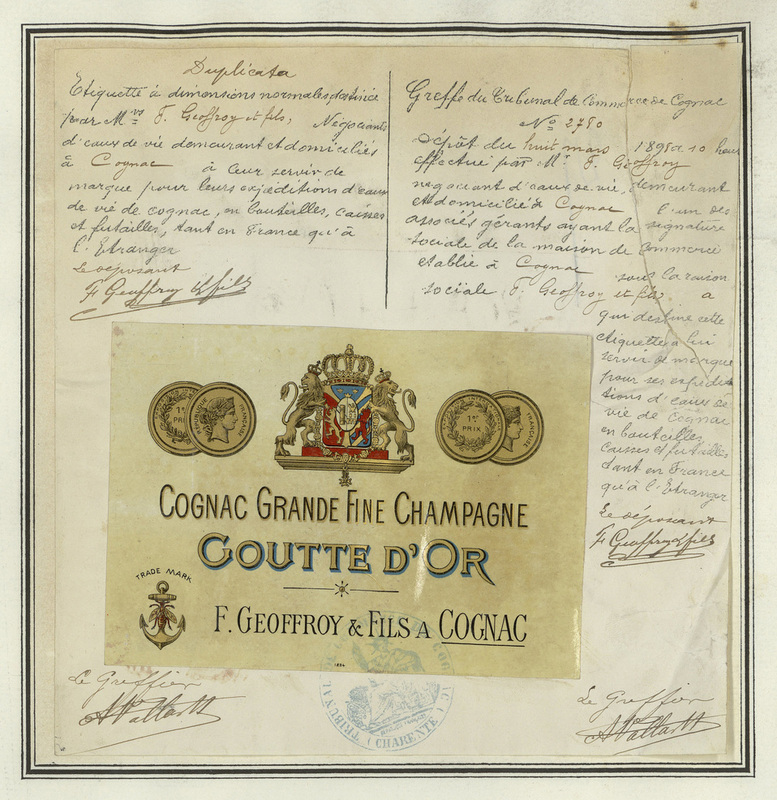 Duplicata
Etiquette à dimensions normales destinée
par Mrs F. Geoffroy et fils, Négociants
d'eaux de vie demeurant et domiciliés
à Cognac à leur servir de
marque pour leurs expéditions d'eaux
de vie de cognac, en bouteilles, caisses
et futailles, tant en France qu'à
l'Etranger
Le déposant
F Geoffroy & fils
Greffe du Tribunal de Commerce de Cognac
No 2790
Dépôt du huit mars 1895 à 10 heures
effectué par Mr F. Geoffroy
négociant d'eaux de vie, demeurant
et domicilié à Cognac l'un des
associés gérants ayant la signature
sociale de la maison de Commerce
établie à Cognac sous la raison
sociale F. Geoffroy et fils, a
qui destine cette
etiquette à lui
servir de marque
pour ses expédi
tions d'eaux de
vie de Cognac
en bouteilles,
Caisses et futailles
tant en France
qu'à l'Etranger
Le déposant
F Geoffroy & fils
1er PRIX
RÉPUBLIQUE FRANÇAISE
1er PRIX
FRANÇAISE
COGNAC GRANDE FINE CHAMPAGNE
GOUTTE D'OR
TRADE MARK
F. GEOFFROY & FILS A COGNAC
Le Greffier
Le Greffier
TRIBUNAL DE COGNAC
(CHARENTE)